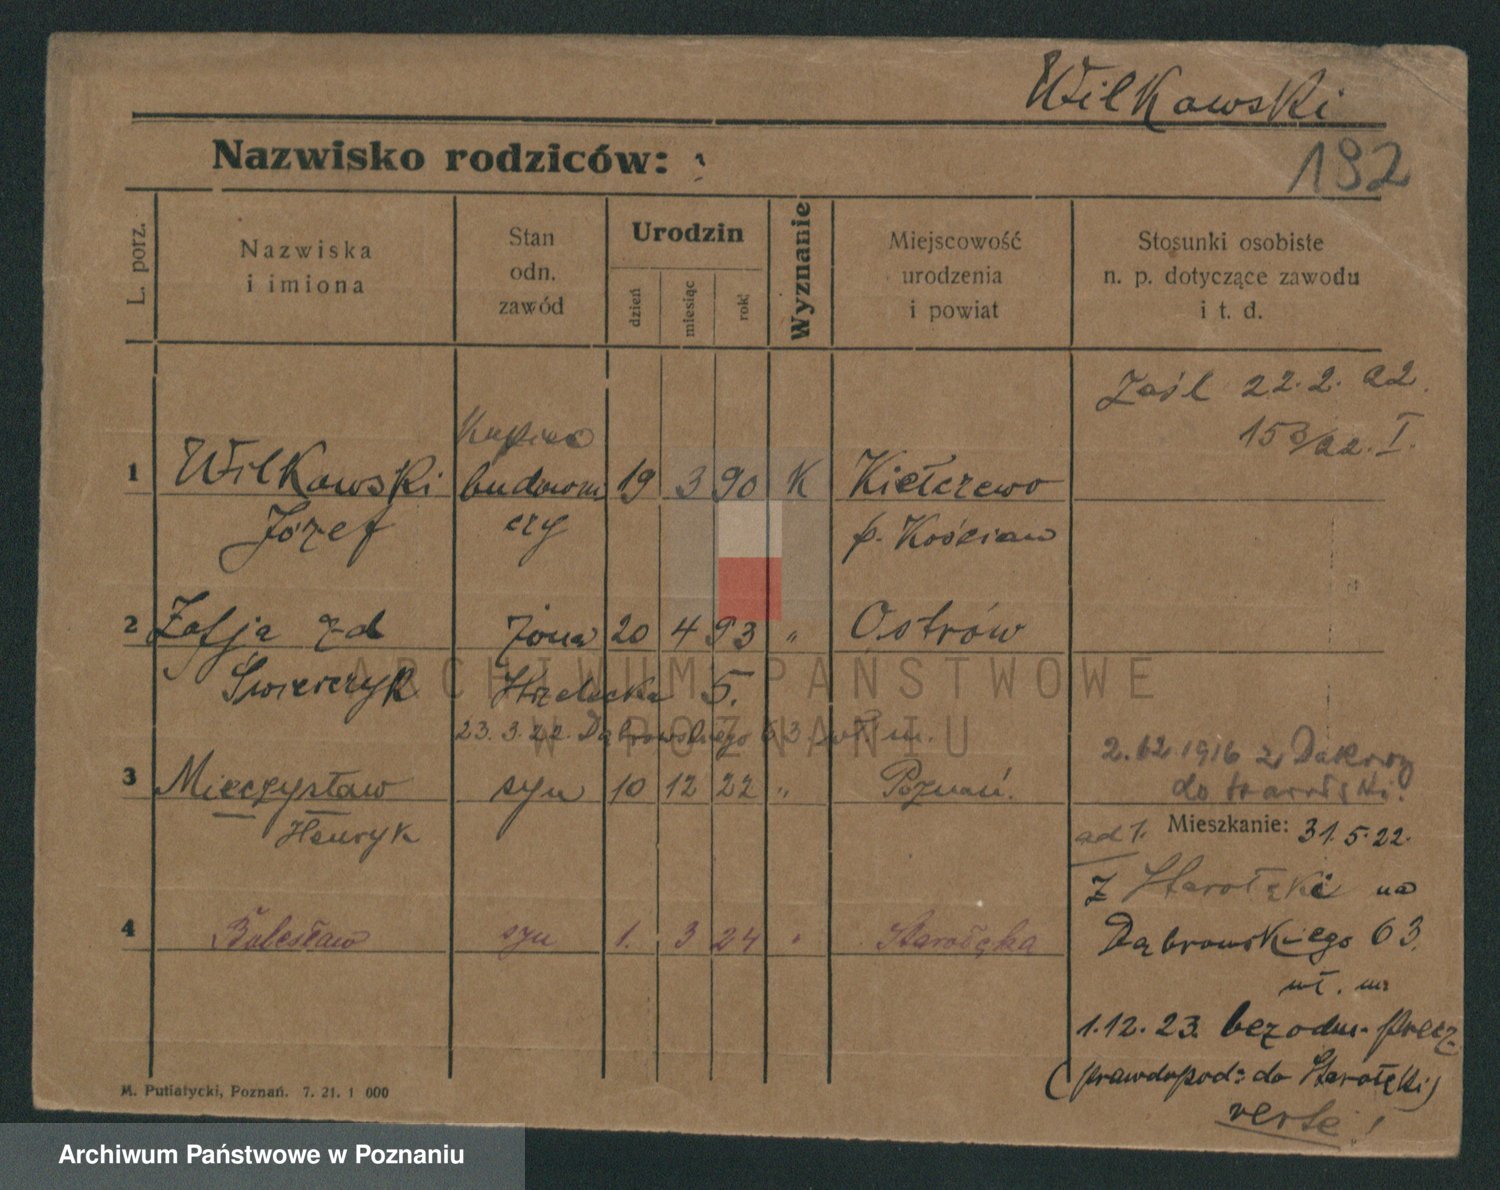 Wilkowski
182
Nazwisko rodziców:
L. porz.
Nazwiska
i imiona
Stan
odn.
zawód
Urodzin
dzień
miesiąc
rok
Wyznanie
Miejscowość
urodzenia
i powiat
Stosunki osobiste
n. p. dotyczące zawodu
i t. d.
Zaśl 22.2.22.
153/22. I.
Kupiec
1 Wilkowski budowni 19 3 90 K Kiełczewo
Józef czy p. Kościan
2 Zofja z d. żona 20 4 93 " Ostrów
Świerczyk Strzelecka 5.
23.3.22. Dąbrowskiego 63 wł. m.
2.12 1916 z
do Starołęki.
3 Mieczysław syn 10 12 22 " Poznań.
Henryk
ad 1. Mieszkanie: 31.5.22.
z Starołęki na
Dąbrowskiego 63.
wł. m.
4 Bolesław syn 1. 3 24 " Starołęka
1.12.23. bez odm.
(prawdopod: do Starołęki)
verte!
M. Putiatycki, Poznań. 7. 21. 1 000
ARCHIWUM PAŃSTWOWE
W POZNANIU
Archiwum Państwowe w Poznaniu